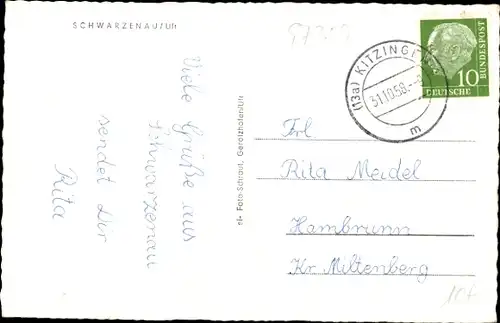 SCHWARZENAU/Ufr
Viele Grüße aus
Schwarzenau
sendet Dir
Rita
el- Foto-Schraut, Gerolzhofen/Ufr
(13a) KITZINGEN
31.10.58.
m
10
DEUTSCHE BUNDESPOST
Frl.
Rita Meidel
Hambrunn
Kr Miltenberg